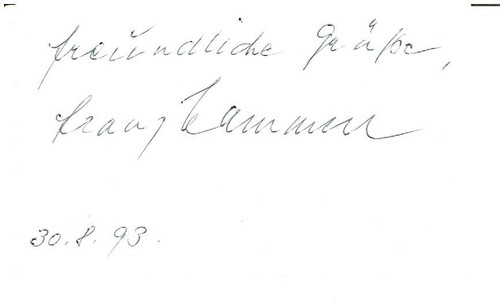 freundliche Grüße,
franz
30.8.93.